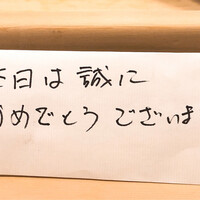 日は誠に
めでとうございま